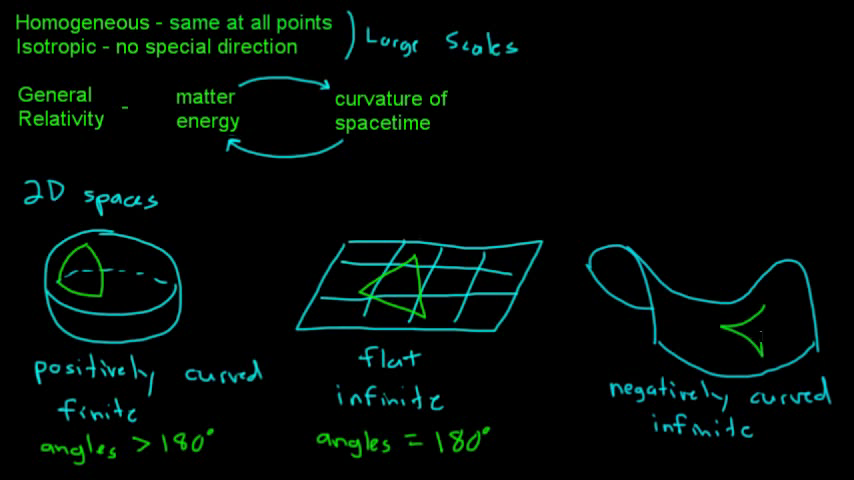 Homogeneous - same at all points
Isotropic - no special direction
) Large Scales
General Relativity -
matter energy
curvature of spacetime
2D spaces
positively curved
finite
angles > 180°
flat
infinite
angles = 180°
negatively curved
infinite